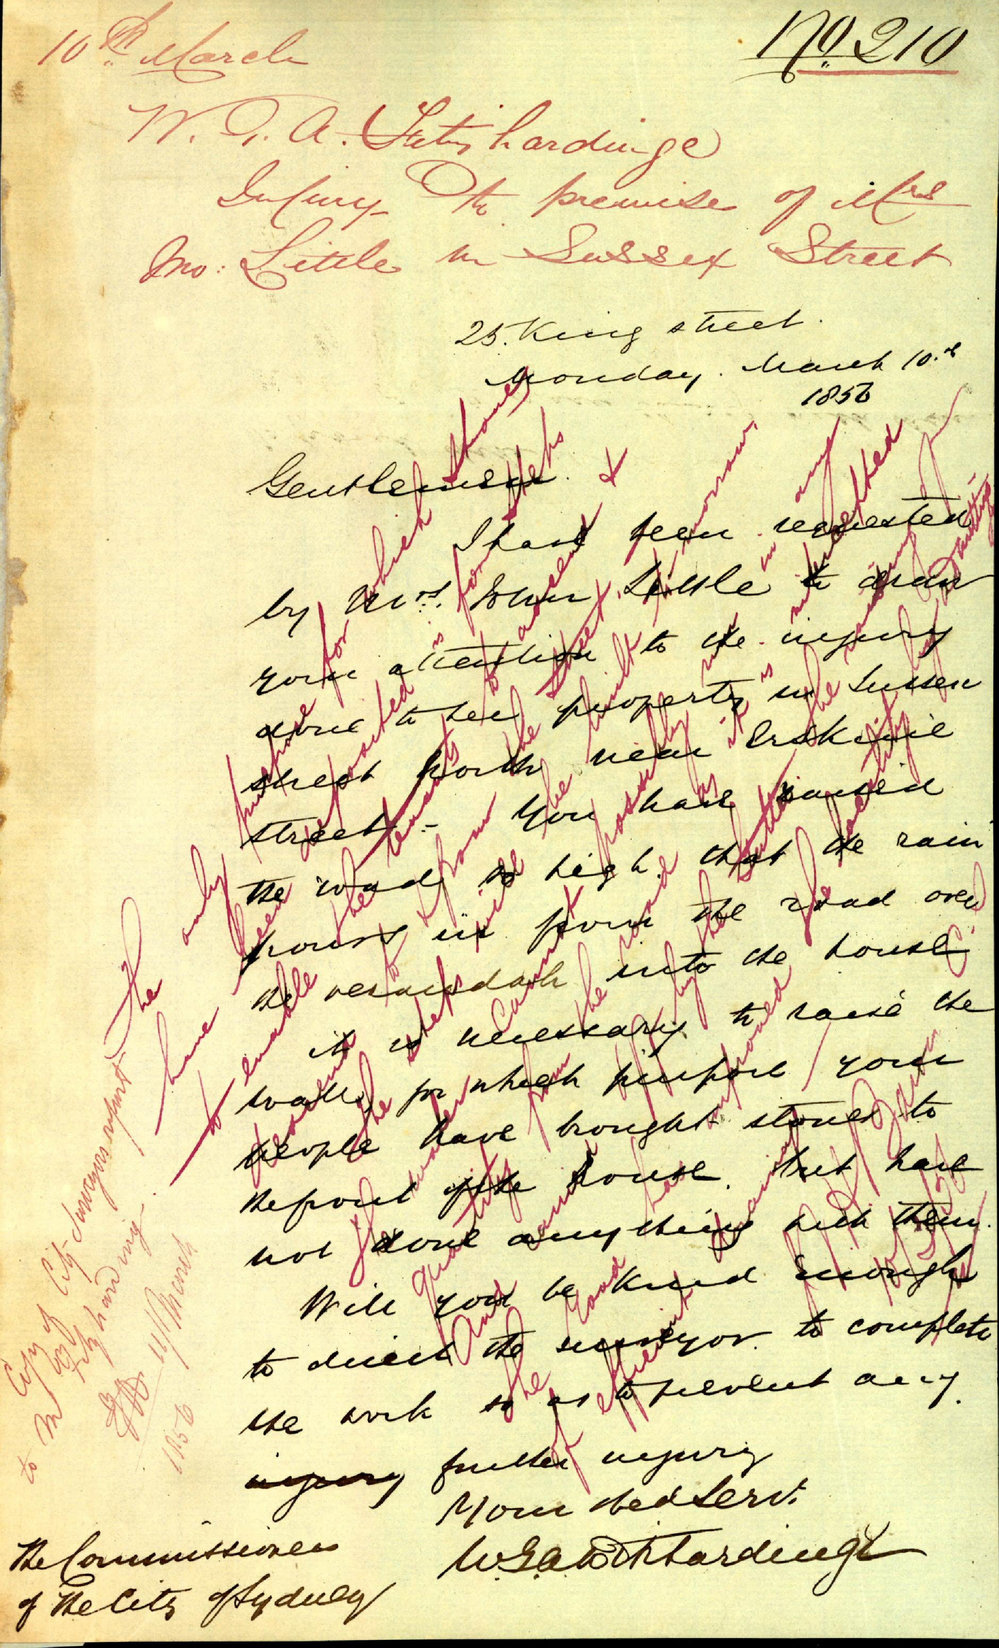 No 210
10th March
W. G. A. Fitzhardinge
Injury to premise of Mrs
Jno: Little in Sussex Street
25. King street.
Monday. March 10th
1856
Gentlemen
I have been requested
by Mrs. John Little to draw
your attention to the injury
done to her property in Sussex
street North near Erskine
street - You have raised
the road so high that the rain
pours in from the road over
the verandah into the house
it is necessary to raise the
walls for which purpose your
people have brought stones to
the front of the house. but have
not done anything with them.
Will you be kind enough
to direct the surveyor to complete
the work so as to prevent any
injury further injury
Your obed Servt.
W G A Fitzhardinge
The Commissioners
of the City of Sydney
The only purpose for which stones
have been deposited is for steps
to enable the tenants to ascend &
descend to & from the street.
The steps will be built to morrow,
water cannot possibly in any
quantity from the road as it is
and
the road has improved the locality
of efficient
Copy of City Surveyors report
to Mr
Fitzhardinge
11/March
1856